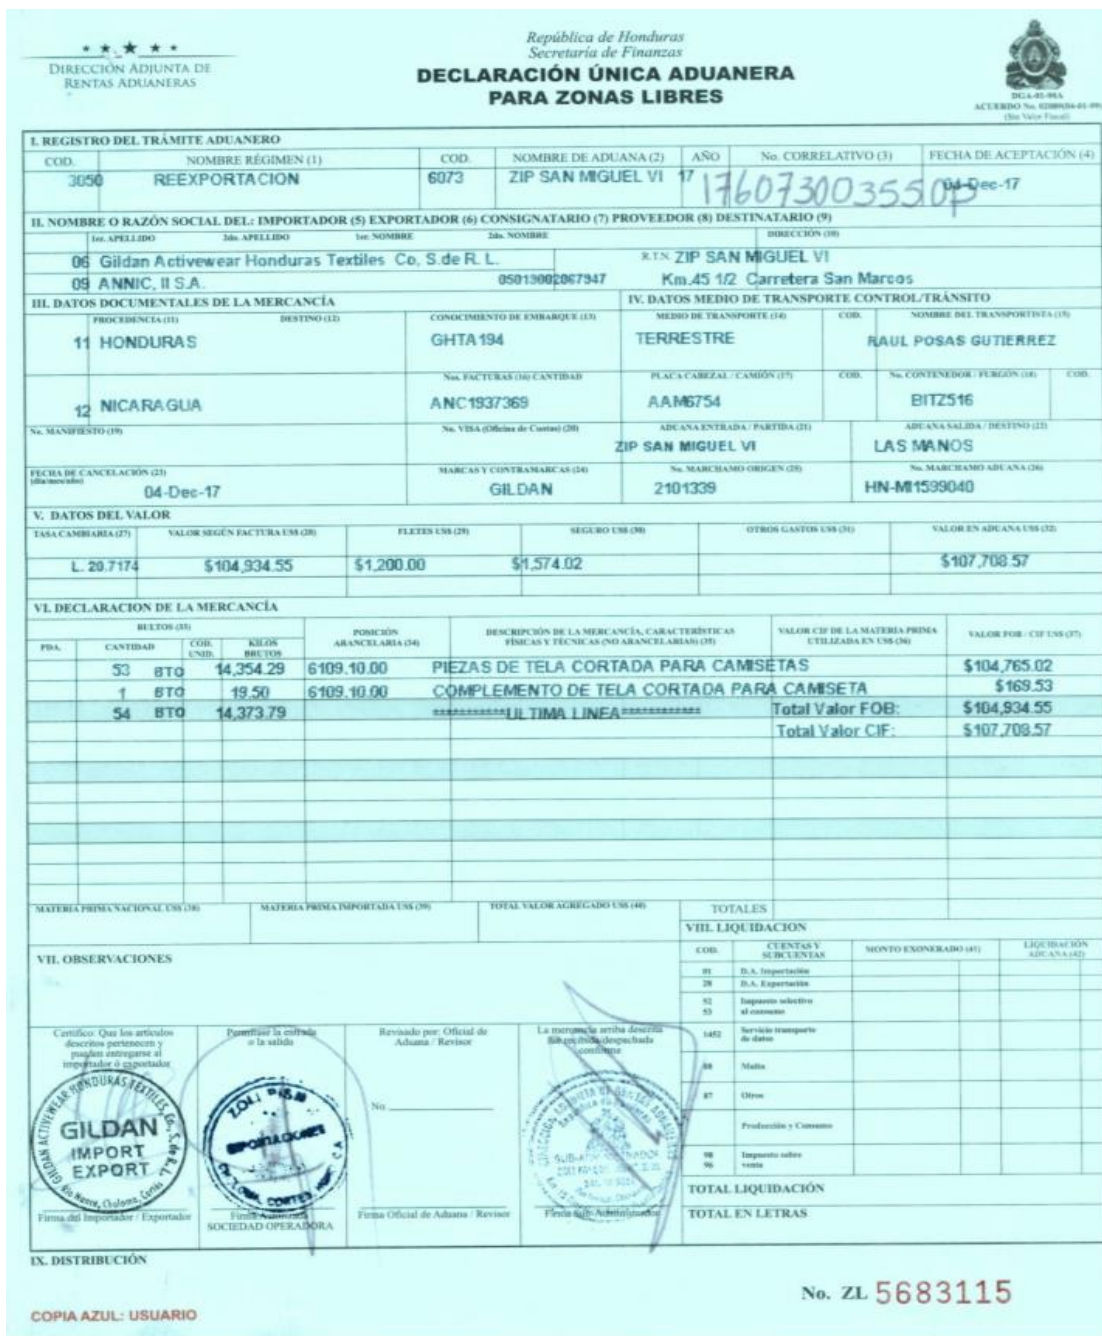 República de Honduras
Secretaría de Finanzas
DECLARACIÓN ÚNICA ADUANERA
PARA ZONAS LIBRES
DIRECCIÓN ADJUNTA DE
RENTAS ADUANERAS
I. REGISTRO DEL TRÁMITE ADUANERO
COD. NOMBRE RÉGIMEN (1) COD. NOMBRE DE ADUANA (2) AÑO No. CORRELATIVO (3) FECHA DE ACEPTACIÓN (4)
3050 REEXPORTACION 6073 ZIP SAN MIGUEL VI 17 04-Dec-17
II. NOMBRE O RAZÓN SOCIAL DEL: IMPORTADOR (5) EXPORTADOR (6) CONSIGNATARIO (7) PROVEEDOR (8) DESTINATARIO (9)
1er. APELLIDO 2do. APELLIDO 1er. NOMBRE 2do. NOMBRE DIRECCIÓN (10)
06 Gildan Activewear Honduras Textiles Co, S.de R. L. R.T.N. ZIP SAN MIGUEL VI
09 ANNIC, II S.A. 05019002067947 Km.45 1/2 Carretera San Marcos
III. DATOS DOCUMENTALES DE LA MERCANCÍA IV. DATOS MEDIO DE TRANSPORTE CONTROL/TRÁNSITO
PROCEDENCIA (11) DESTINO (12) CONOCIMIENTO DE EMBARQUE (13) MEDIO DE TRANSPORTE (14) COD. NOMBRE DEL TRANSPORTISTA (15)
11 HONDURAS GHTA194 TERRESTRE RAUL POSAS GUTIERREZ
Nos. FACTURAS (16) CANTIDAD PLACA CABEZAL / CAMIÓN (17) COD. No. CONTENEDOR / FURGÓN (18) COD.
12 NICARAGUA ANC1937369 AAM6754 BITZ516
No. MANIFIESTO (19) No. VISA (Oficina de Cuotas) (20) ADUANA ENTRADA / PARTIDA (21) ADUANA SALIDA / DESTINO (22)
ZIP SAN MIGUEL VI LAS MANOS
FECHA DE CANCELACIÓN (23) MARCAS Y CONTRAMARCAS (24) No. MARCHAMO ORIGEN (25) No. MARCHAMO ADUANA (26)
(día/mes/año)
04-Dec-17 GILDAN 2101339 HN-MI1599040
V. DATOS DEL VALOR
TASA CAMBIARIA (27) VALOR SEGÚN FACTURA US$ (28) FLETES US$ (29) SEGURO US$ (30) OTROS GASTOS US$ (31) VALOR EN ADUANA US$ (32)
L. 20.7174 $104,934.55 $1,200.00 $1,574.02 $107,708.57
VI. DECLARACION DE LA MERCANCÍA
PDA. BULTOS (33) CANTIDAD COD. UNID. KILOS BRUTOS POSICIÓN ARANCELARIA (34) DESCRIPCIÓN DE LA MERCANCÍA, CARACTERÍSTICAS FÍSICAS Y TÉCNICAS (NO ARANCELARIAS) (35) VALOR CIF DE LA MATERIA PRIMA UTILIZADA EN US$ (36) VALOR FOB / CIF US$ (37)
53 BTO 14,354.29 6109.10.00 PIEZAS DE TELA CORTADA PARA CAMISETAS $104,765.02
1 BTO 19.50 6109.10.00 COMPLEMENTO DE TELA CORTADA PARA CAMISETA $169.53
54 BTO 14,373.79 ***********ULTIMA LINEA************ Total Valor FOB: $104,934.55
Total Valor CIF: $107,708.57
MATERIA PRIMA NACIONAL US$ (38) MATERIA PRIMA IMPORTADA US$ (39) TOTAL VALOR AGREGADO US$ (40) TOTALES
VIII. LIQUIDACION
VII. OBSERVACIONES
COD. CUENTAS Y SUBCUENTAS MONTO EXONERADO (41) LIQUIDACIÓN ADUANA (42)
01 D.A. Importación
28 D.A. Exportación
52 Impuesto selectivo
53 al consumo
1452 Servicio transporte de datos
Multa
87 Otros
Producción y Consumo
98 Impuesto sobre
96 venta
TOTAL LIQUIDACIÓN
TOTAL EN LETRAS
Certifico: Que los artículos
descritos pertenecen y
pueden entregarse al
importador ó exportador
Permítase la entrada
o la salida
Revisado por: Oficial de
Aduana / Revisor
No.
La mercancía arriba descrita
fue recibida/despachada
conforme
GILDAN ACTIVEWEAR HONDURAS TEXTILES, Co., S. de R.L.
GILDAN
IMPORT
EXPORT
Río Nance, Choloma, Cortés
EXPORTACIONES
Firma del Importador / Exportador
SOCIEDAD OPERADORA
Firma Oficial de Aduana / Revisor
Firma Sub-Administrador
IX. DISTRIBUCIÓN
No. ZL 5683115
COPIA AZUL: USUARIO